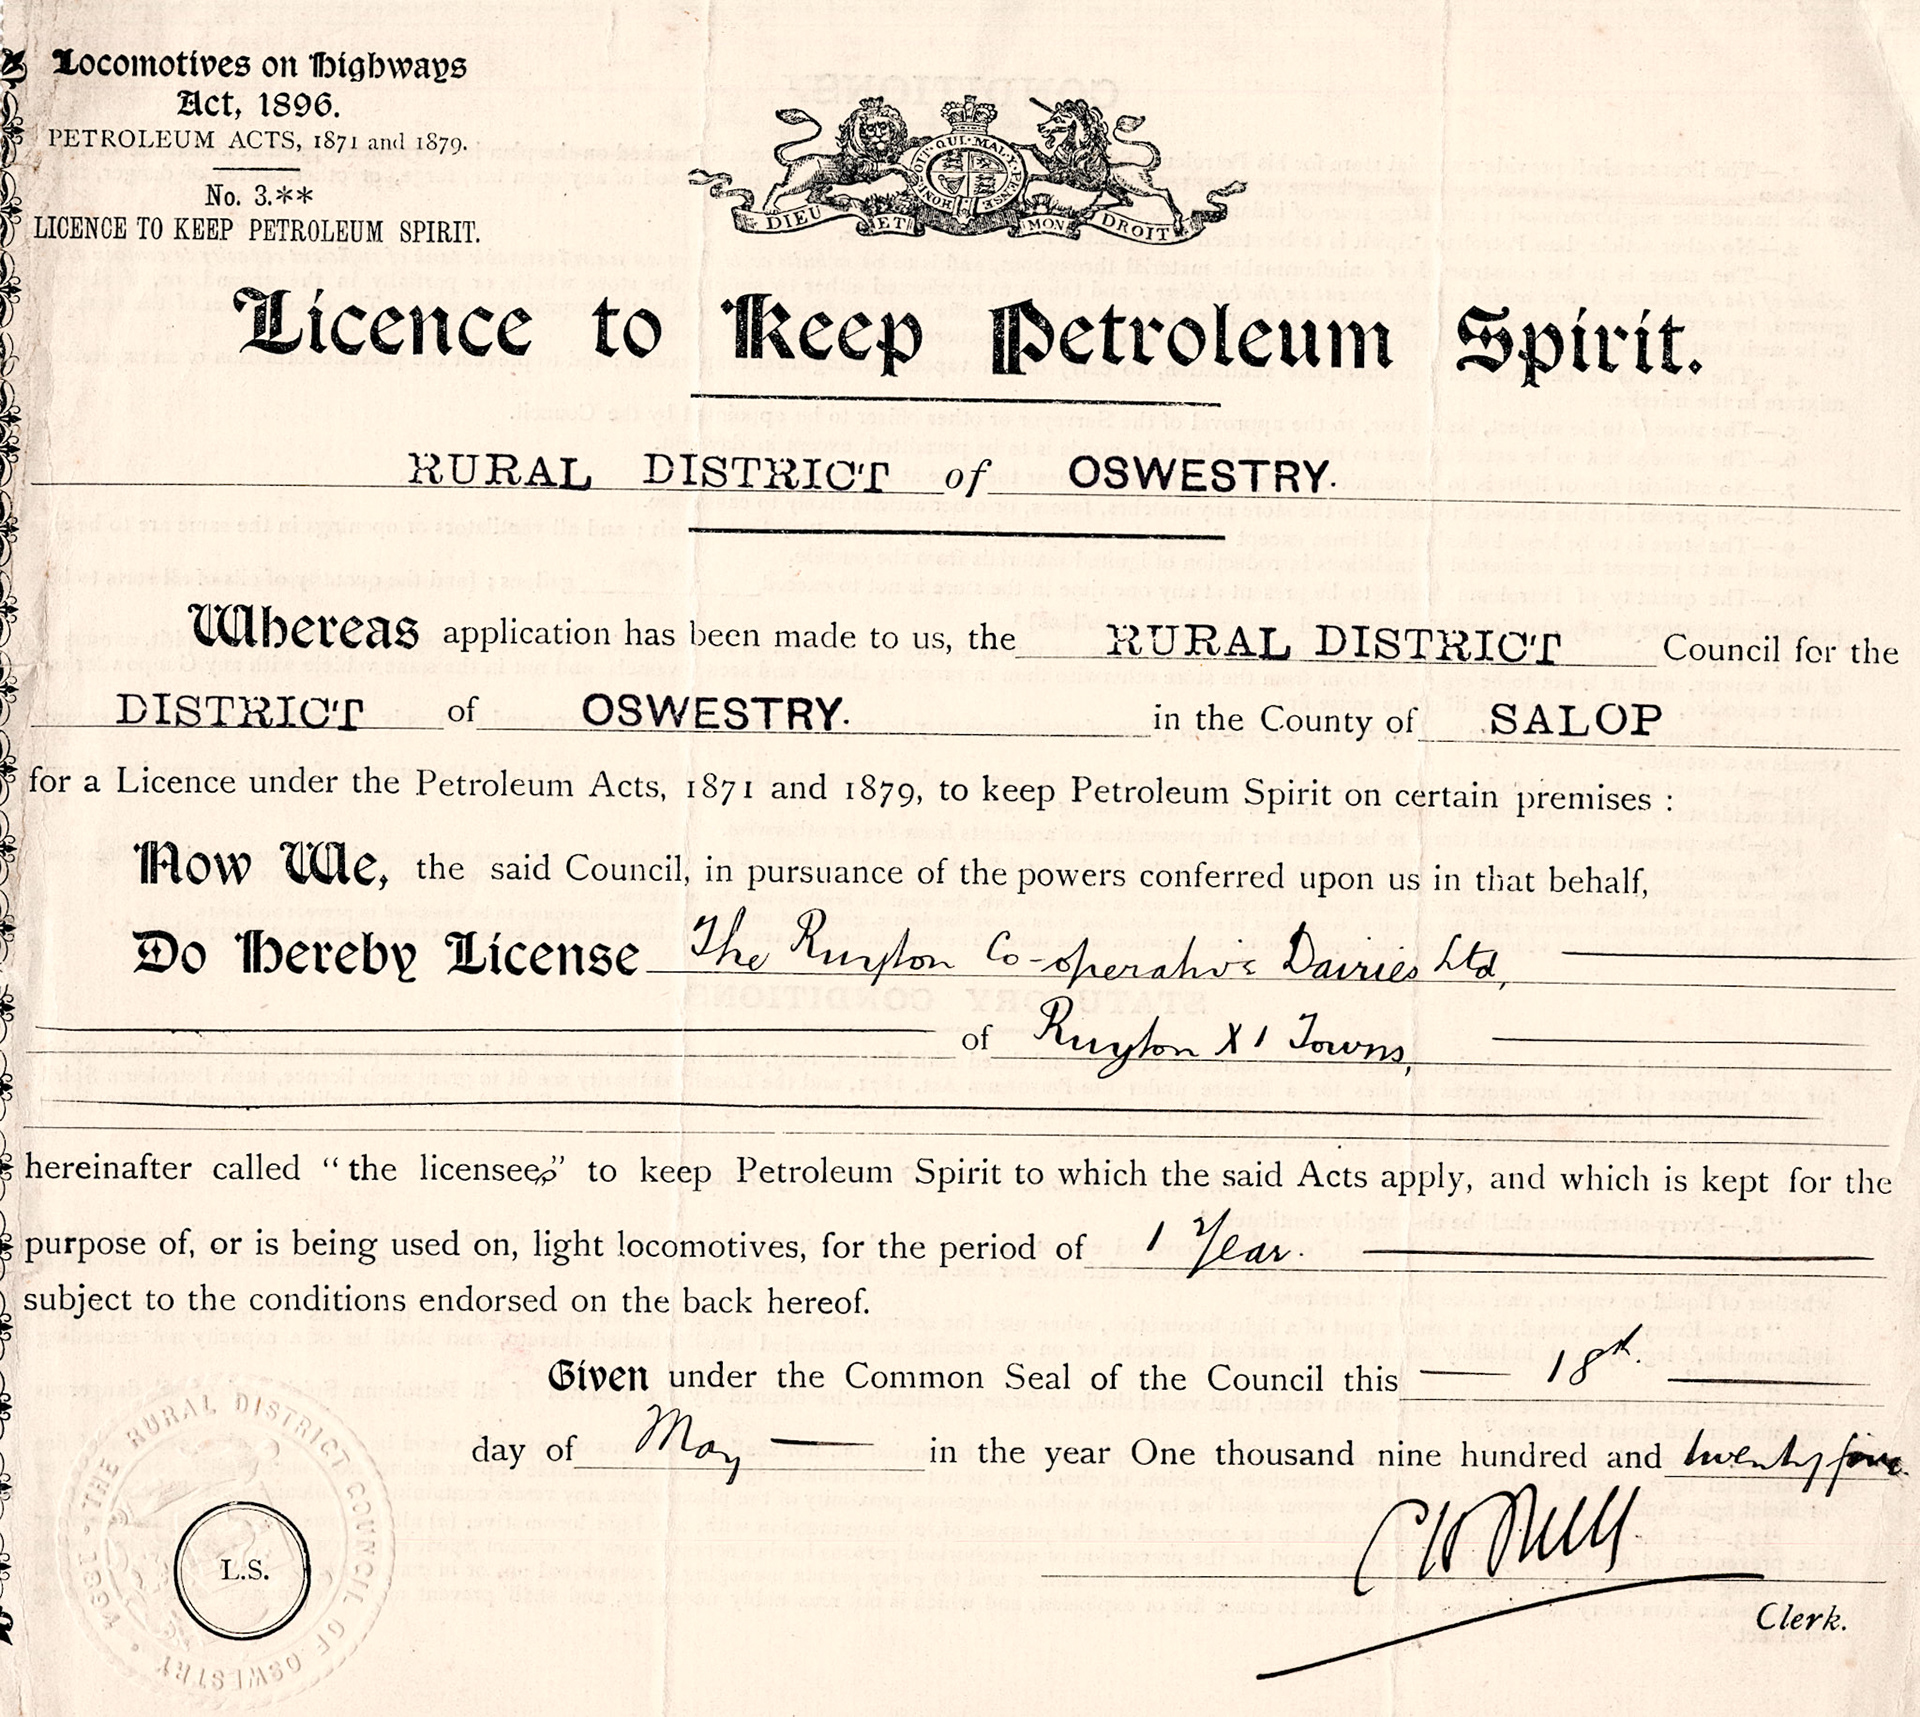 Locomotives on Highways
Act, 1896.
PETROLEUM ACTS, 1871 and 1879.
No. 3.**
LICENCE TO KEEP PETROLEUM SPIRIT.
HONI·SOIT·QUI·MAL·Y·PENSE
DIEU ET MON DROIT
Licence to Keep Petroleum Spirit.
RURAL DISTRICT of OSWESTRY.
Whereas application has been made to us, the RURAL DISTRICT Council for the
DISTRICT of OSWESTRY. in the County of SALOP
for a Licence under the Petroleum Acts, 1871 and 1879, to keep Petroleum Spirit on certain premises :
Now We, the said Council, in pursuance of the powers conferred upon us in that behalf,
Do Hereby License The Ruyton Co-operative Dairies Ltd,
of Ruyton XI Towns,
hereinafter called "the licensees" to keep Petroleum Spirit to which the said Acts apply, and which is kept for the
purpose of, or is being used on, light locomotives, for the period of 1 Year.
subject to the conditions endorsed on the back hereof.
Given under the Common Seal of the Council this 18th.
day of May in the year One thousand nine hundred and twenty five.
Clerk.
L.S.
THE RURAL DISTRICT COUNCIL OF OSWESTRY